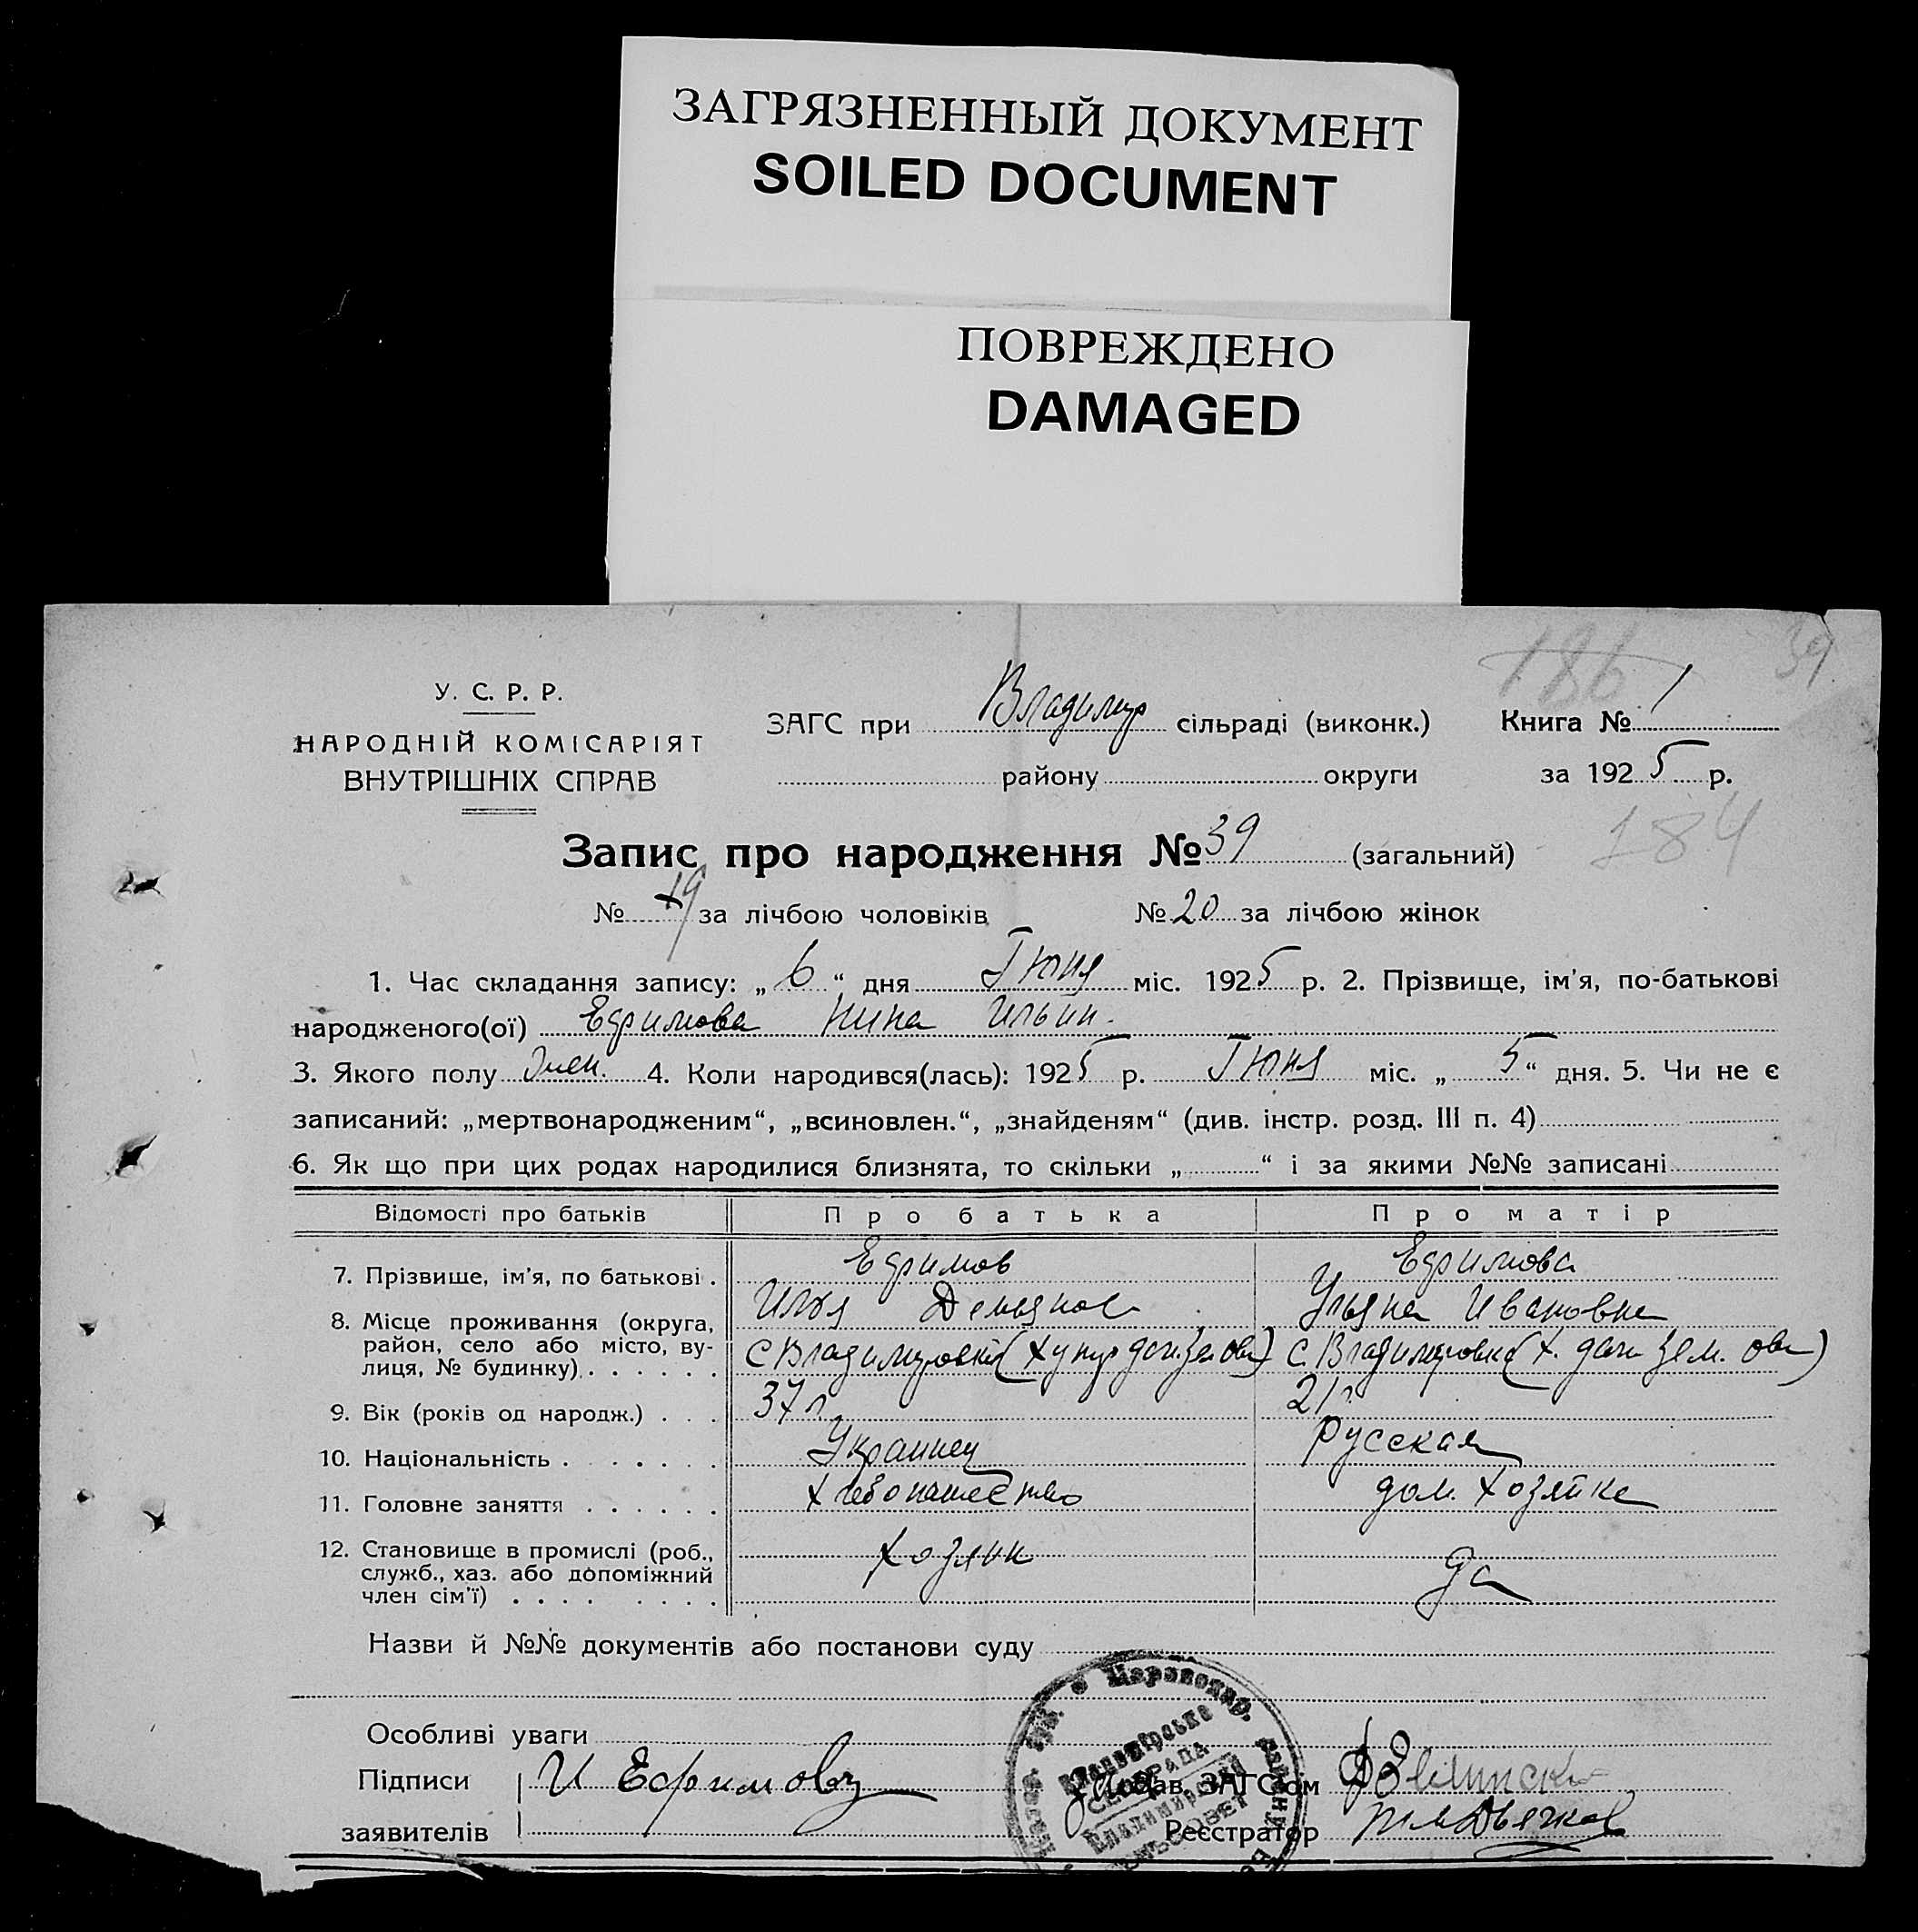 ЗАГРЯЗНЕННЫЙ ДОКУМЕНТ
SOILED DOCUMENT
ПОВРЕЖДЕНО
DAMAGED
186 39
У. С. Р. Р.
НАРОДНІЙ КОМІСАРІЯТ
ВНУТРІШНІХ СПРАВ
ЗАГС при Владимир сільраді (виконк.) Книга № 1
району округи за 1925 р.
184
Запис про народження № 39 (загальний)
№ 19 за лічбою чоловіків № 20 за лічбою жінок
1. Час складання запису: „ 6 “ дня Іюня міс. 1925 р. 2. Прізвище, ім'я, по-батькові
народженого(ої) Ефимова Нина Ильин.
3. Якого полу жен. 4. Коли народився(лась): 1925 р. Іюня міс. „ 5 “ дня. 5. Чи не є
записаний: „мертвонародженим“, „всиновлен.“, „знайденям“ (див. інстр. розд. III п. 4)
6. Як що при цих родах народилися близнята, то скільки „ “ і за якими №№ записані
Відомості про батьків Про батька Про матір
7. Прізвище, ім'я, по батькові . Ефимов Ефимова
Илья Демьянов Ульяна Ивановна
8. Місце проживання (округа,
район, село або місто, ву-
лиця, № будинку) . . . . . . с Владимировка с. Владимировка
9. Вік (років од народж.) . . . 37 л. 21 г
10. Національність . . . . . . . Украинец Русская
11. Головне заняття . . . . . . Хлебопашество дом. хозяйка
12. Становище в промислі (роб.,
служб., хаз. або допоміжний
член сім'ї) . . . . . . . . Хозяин да
Назви й №№ документів або постанови суду
Особливі уваги
Підписи И Ефимов Завідав. ЗАГС'ом
заявителів Реєстратор Дьячков
Володимірська
СІЛЬРАДА
Владимирский
СЕЛЬСОВЕТ